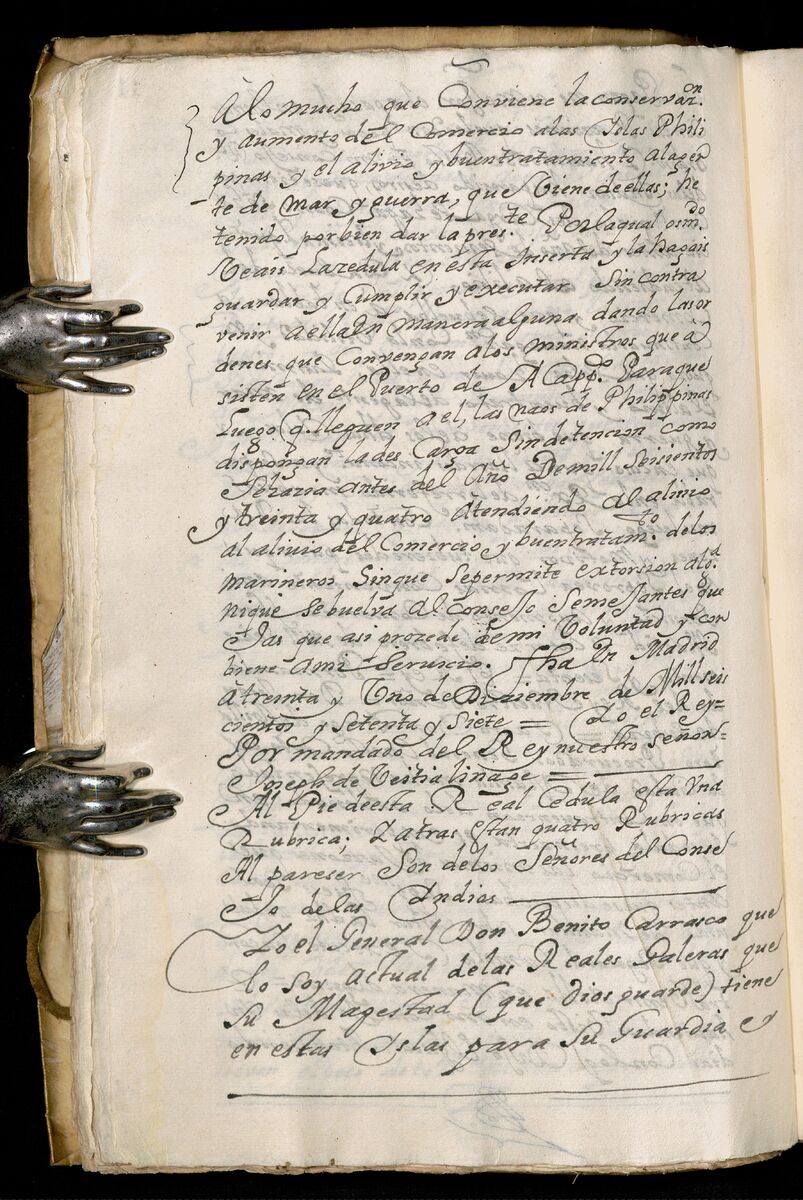 A lo mucho que Conviene la conservaz.on
y aumento del Comercio a las Yslas Phili
pinas y el alivio y buen tratamiento a la gen
te de mar y guerra, que Viene de ellas; he
tenido por bien dar la pres.te Por la qual os m.do
Veais La zedula en esta Inserta y la hagais
guardar y Cumplir y executar Sin contra
venir a ella En manera alguna dando las or
denes que Convengan a los ministros que a
sisten en el Puerto de Acapp.co Para que
Luego q. lleguen a el, las naos de Philippinas
dispongan la des Carga Sin detencion como
Se hazia antes del Año De mill Seisientos
y treinta y quatro Atendiendo al alivio
al alivio del Comercio y buen tratam.to de los
marineros Sin que Se permite extorsion alg.a
ni que Se buelva al Consejo Semejantes que
Jas que asi prozede de mi Voluntad y con
biene a mi Servicio. Fha En Madrid
a treinta y Uno de Diziembre de Mill seis
cientos y Setenta y Siete = Yo el Rey =
Por mandado del Rey nuestro Señor =
Joseph de Veitia linage =
Al Pie de esta Real Cedula esta Una
Rubrica; Y atras estan quatro Rubricas
Al pareser Son de los Señores del Conse
Jo de las Yndias
Yo el General Don Benito Carrasco que
lo soy actual de las Reales Galeras que
Su Magestad (que dios guarde) tiene
en estas Yslas para Su Guardia y